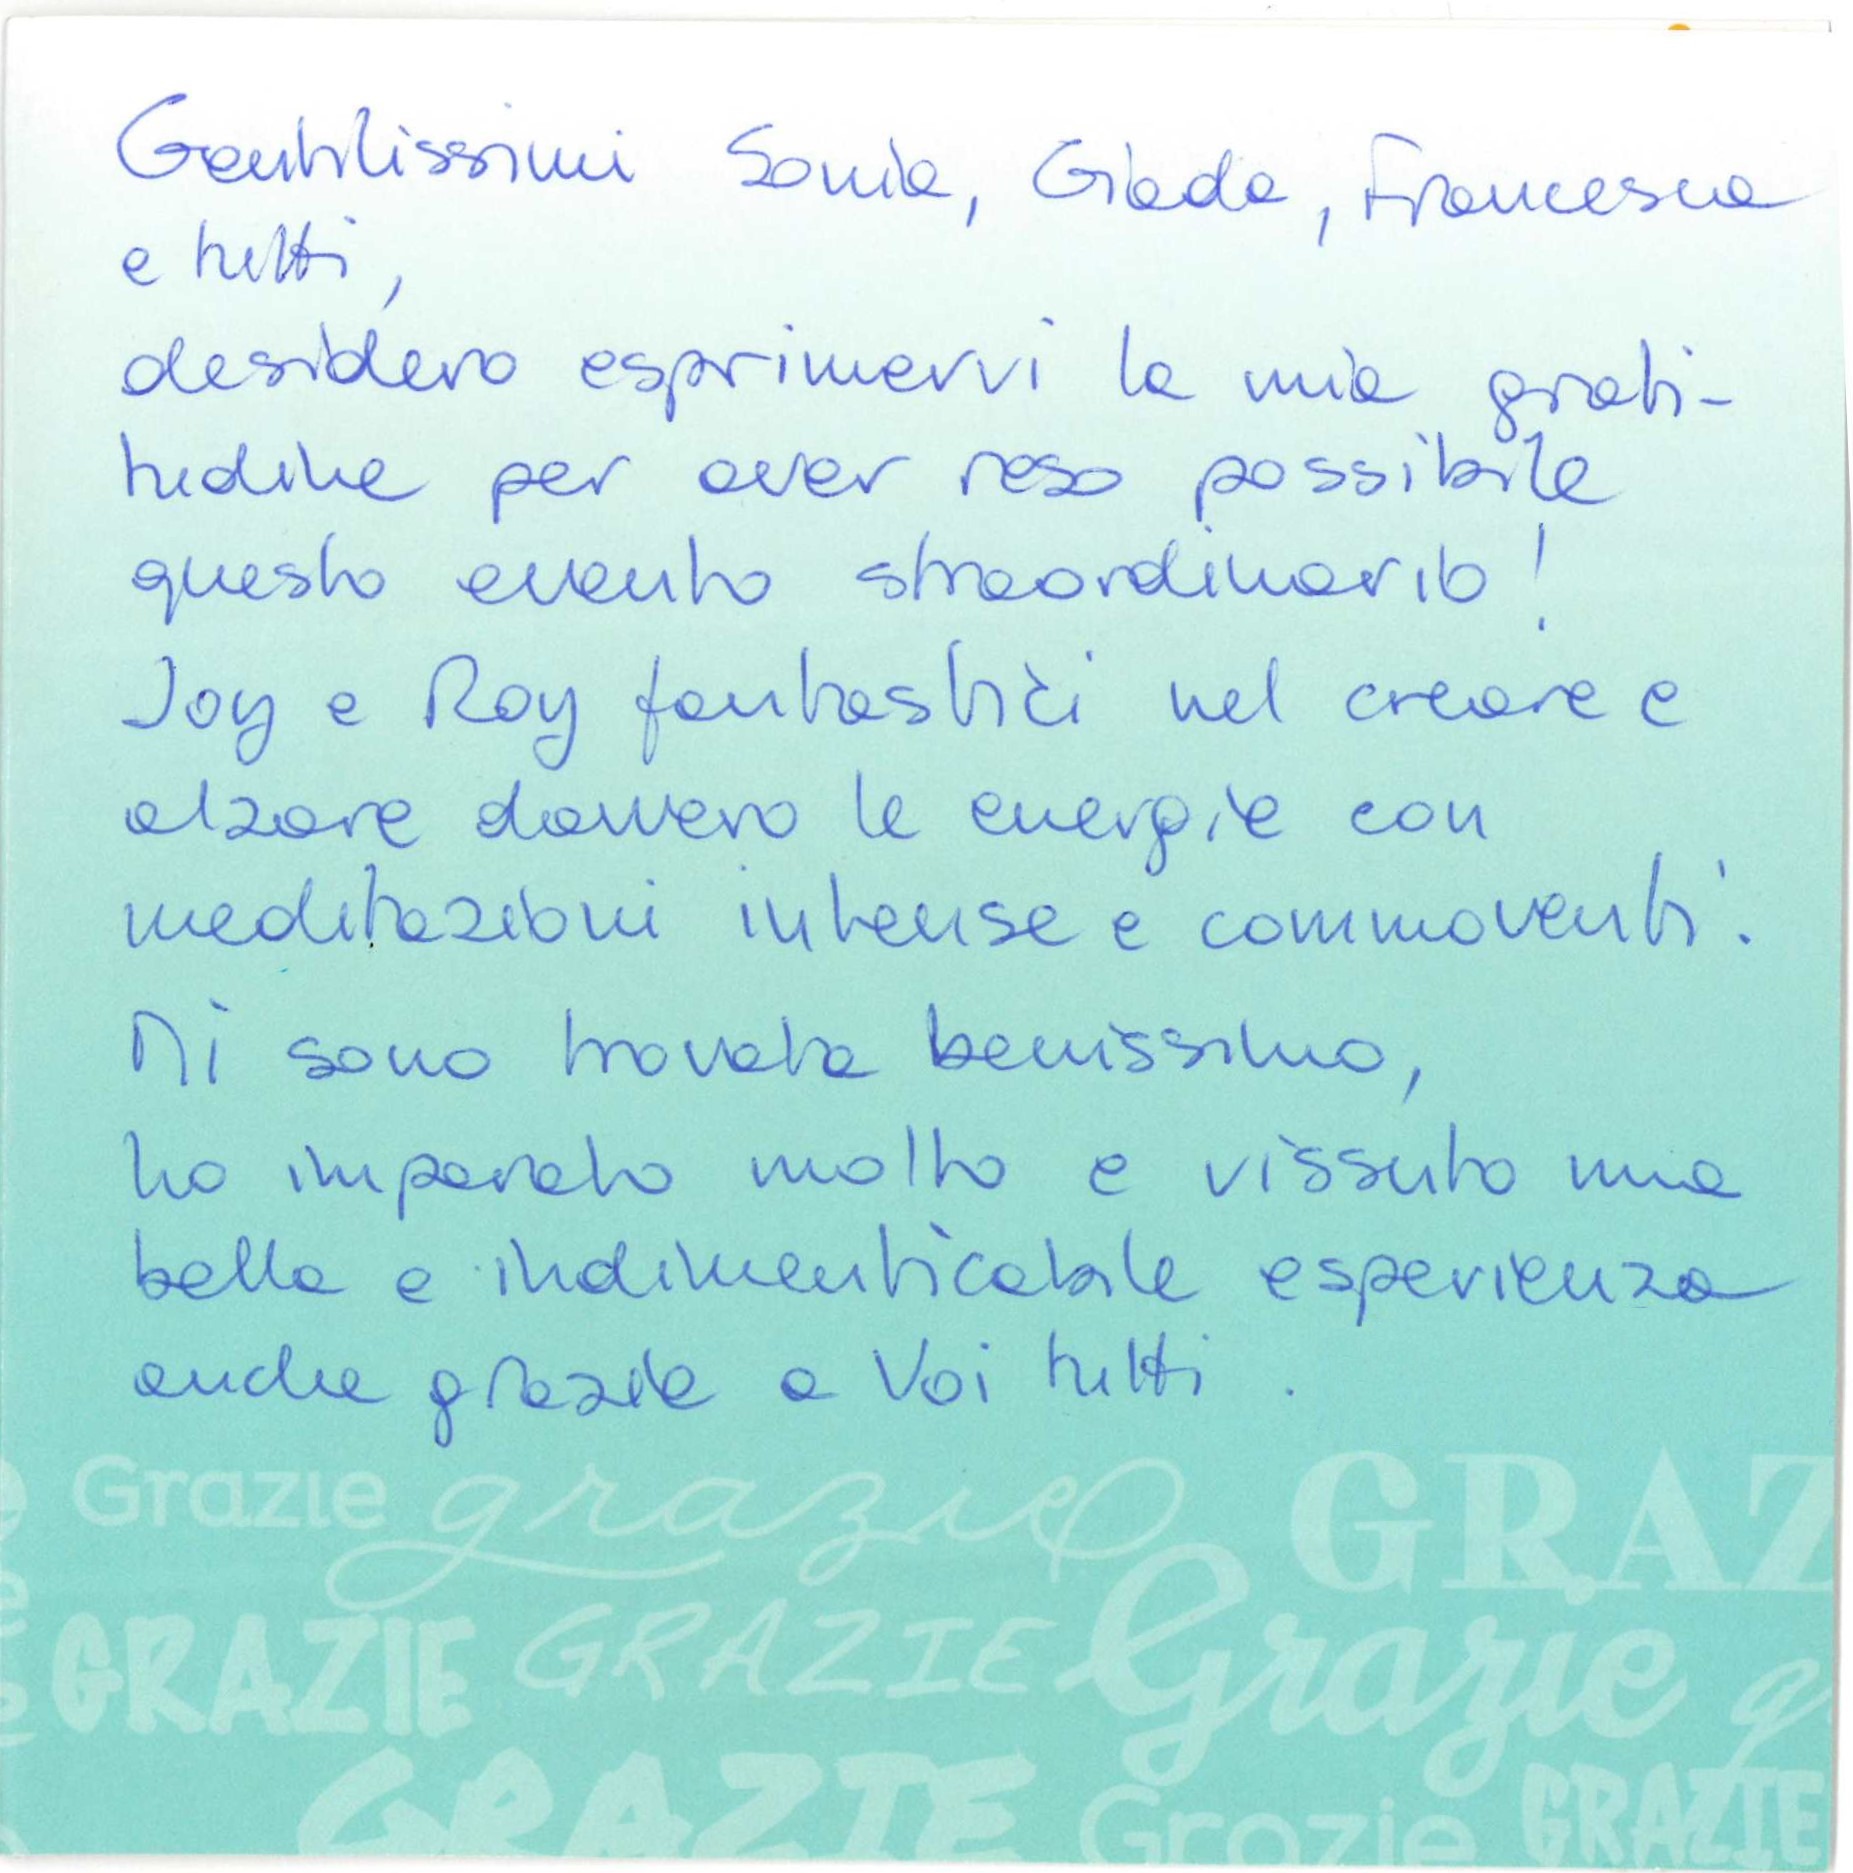 Gentilissimi Sonia, Giada, Francesca
e tutti,
desidero esprimervi la mia grati-
tudine per aver reso possibile
questo evento straordinario!
Joy e Roy fantastici nel creare e
alzare davvero le energie con
meditazioni intense e commoventi.
Mi sono trovata benissimo,
ho imparato molto e vissuto una
bella e indimenticabile esperienza
anche grazie a Voi tutti.
Grazie grazie GRAZ
GRAZIE GRAZIE Grazie g
GRAZIE Grazie GRAZIE